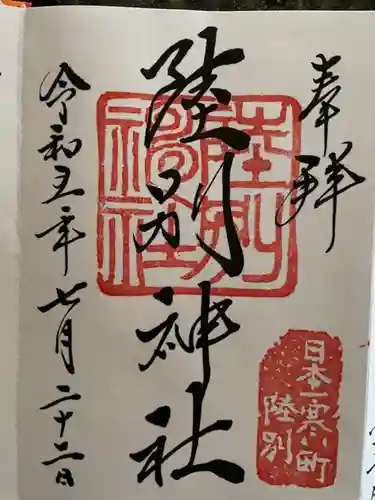 奉拝
陸別神社
陸別
神社
日本一寒い町
陸別
令和五年七月二十二日